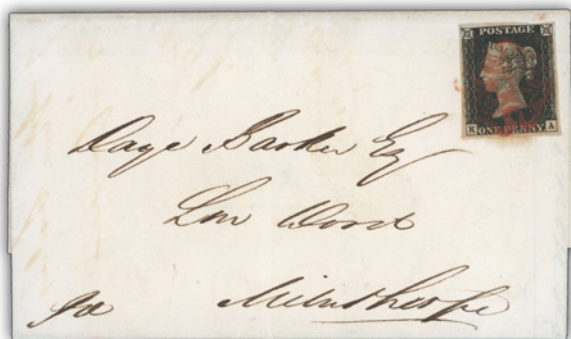 POSTAGE
K A
ONE PENNY
Daye Barker Esq
Low Wood
Milnthorpe